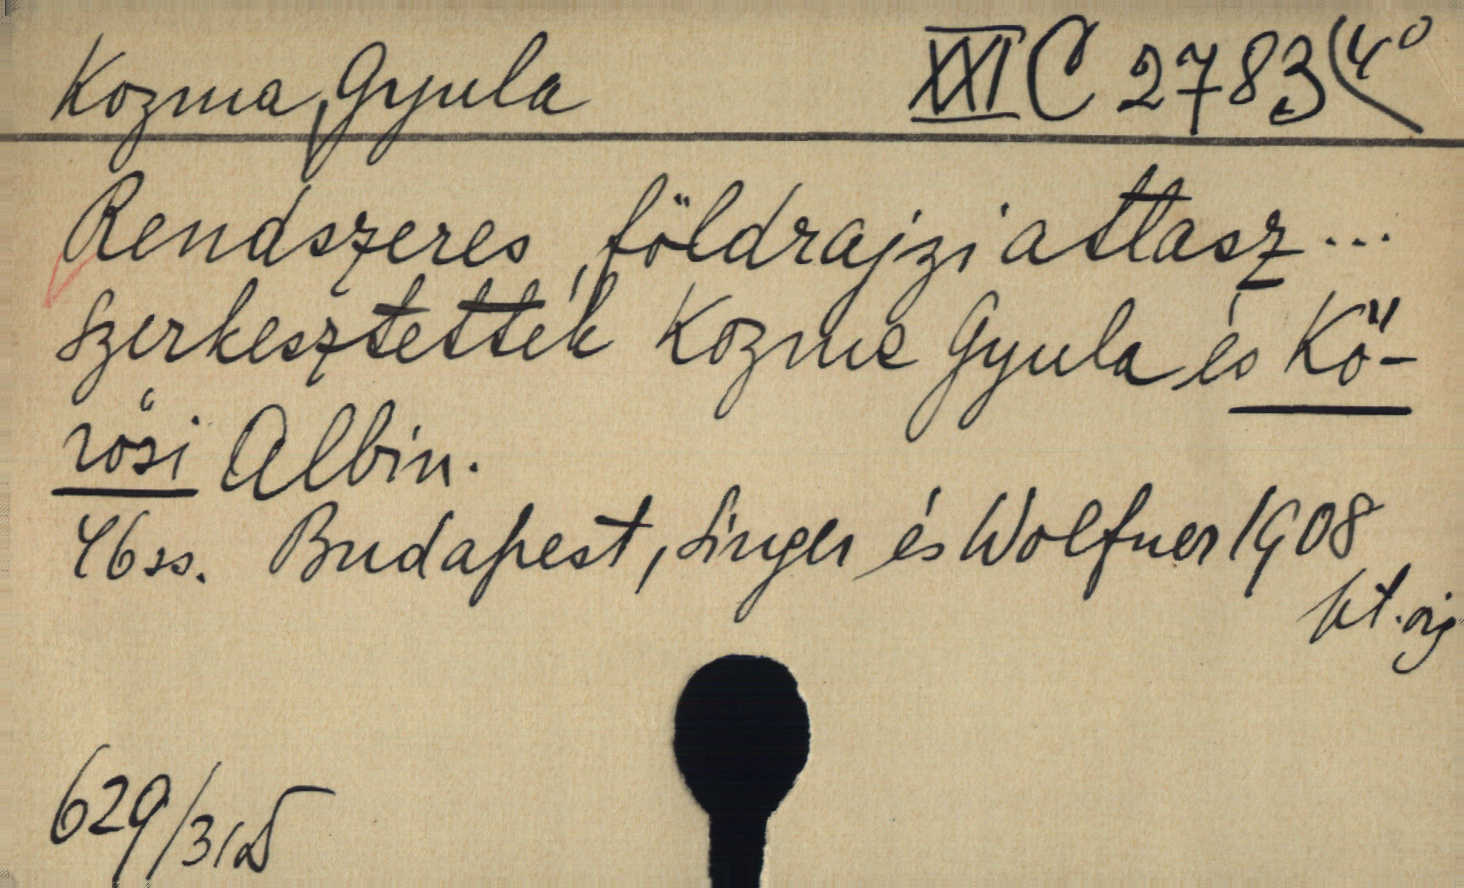 Kozma, Gyula XXI C 2783 (4°
Rendszeres földrajzi attasz...
szerkesztették Kozma Gyula és Kő-
rösi Albin.
46 ss. Budapest, Singer és Wolfner 1908
kt.
629/31